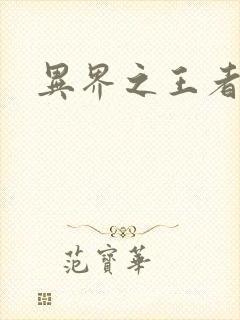 異界之王者
范寶華